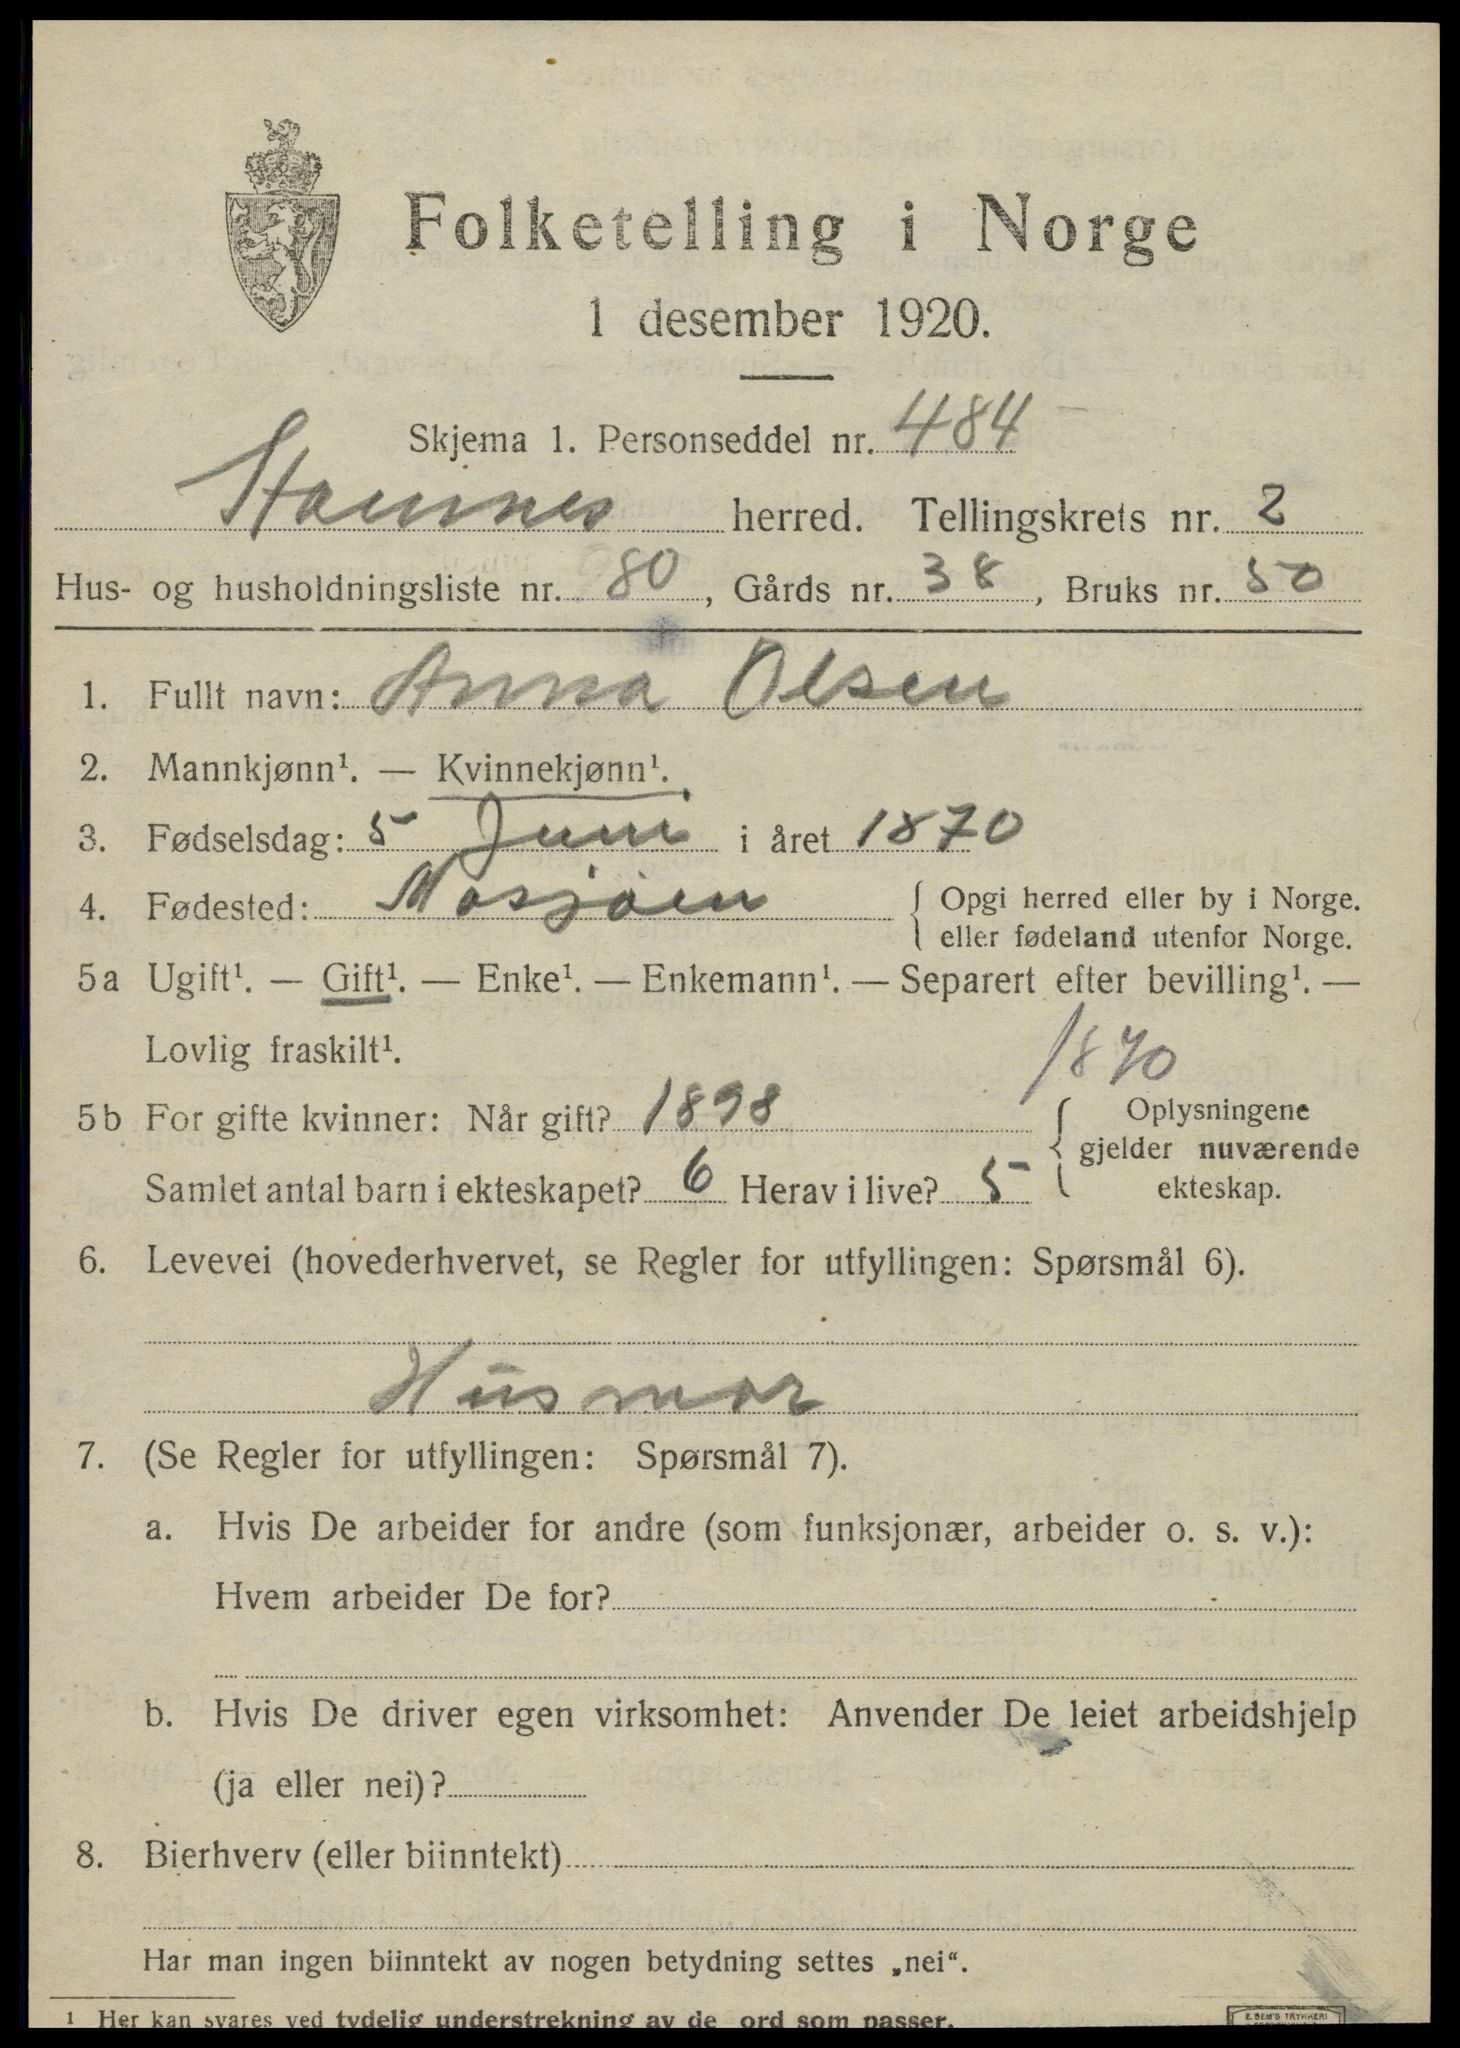 Folketelling i Norge
1 desember 1920.
Skjema 1. Personseddel nr. 484
Stamnes herred. Tellingskrets nr. 2
Hus- og husholdningsliste nr. 80, Gårds nr. 38, Bruks nr. 50
1. Fullt navn: Anna Olsen
2. Mannkjønn¹. — Kvinnekjønn¹.
3. Fødselsdag: 5 Juni i året 1870
4. Fødested: Mosjøen { Opgi herred eller by i Norge.
eller fødeland utenfor Norge.
5a Ugift¹. — Gift¹. — Enke¹. — Enkemann¹. — Separert efter bevilling¹. —
Lovlig fraskilt¹.
1870
5b For gifte kvinner: Når gift? 1898 { Oplysningene
gjelder nuværende
Samlet antal barn i ekteskapet? 6 Herav i live? 5 ekteskap.
6. Levevei (hovederhvervet, se Regler for utfyllingen: Spørsmål 6).
Husmor
7. (Se Regler for utfyllingen: Spørsmål 7).
a. Hvis De arbeider for andre (som funksjonær, arbeider o. s. v.):
Hvem arbeider De for?
b. Hvis De driver egen virksomhet: Anvender De leiet arbeidshjelp
(ja eller nei)?
8. Bierhverv (eller biinntekt)
Har man ingen biinntekt av nogen betydning settes „nei“.
¹ Her kan svares ved tydelig understrekning av de ord som passer.
E. SEM'S TRYKKERI